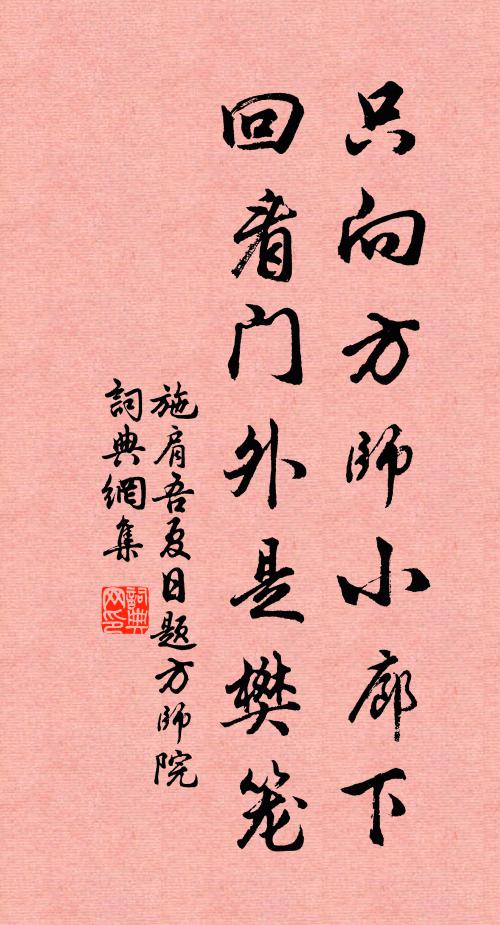 只向方師小廊下
回看门外是樊笼
施肩吾夏日题方師院
詞典網集
詞典
网印